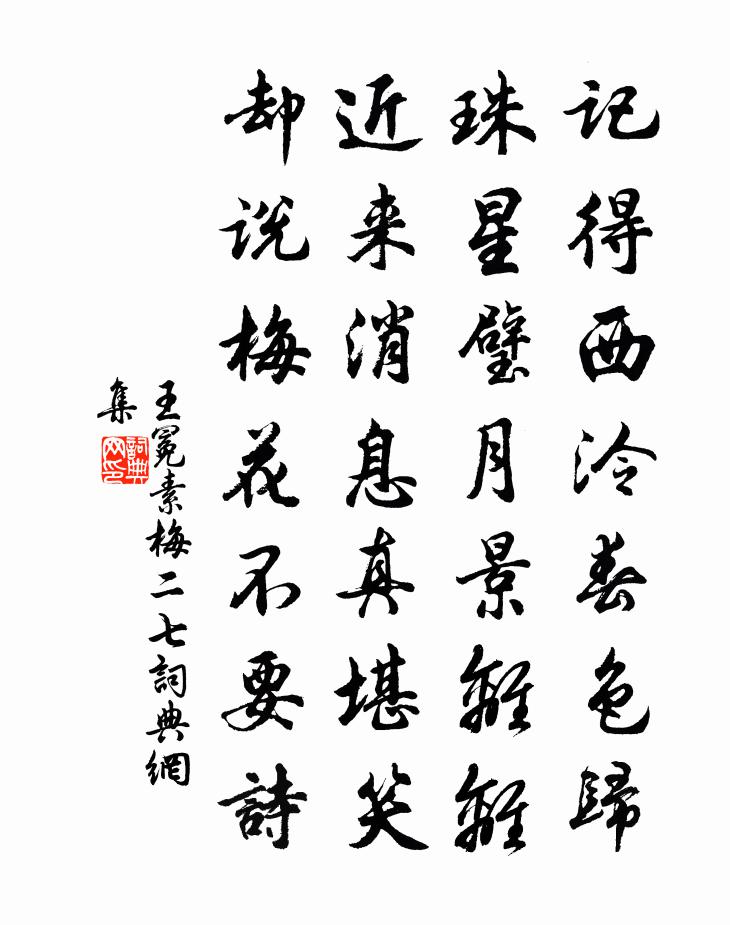 記得西泠春色歸
珠星璧月景離離
近来消息真堪笑
却説梅花不要詩
王冕素梅二七詞典網
集
詞典網印